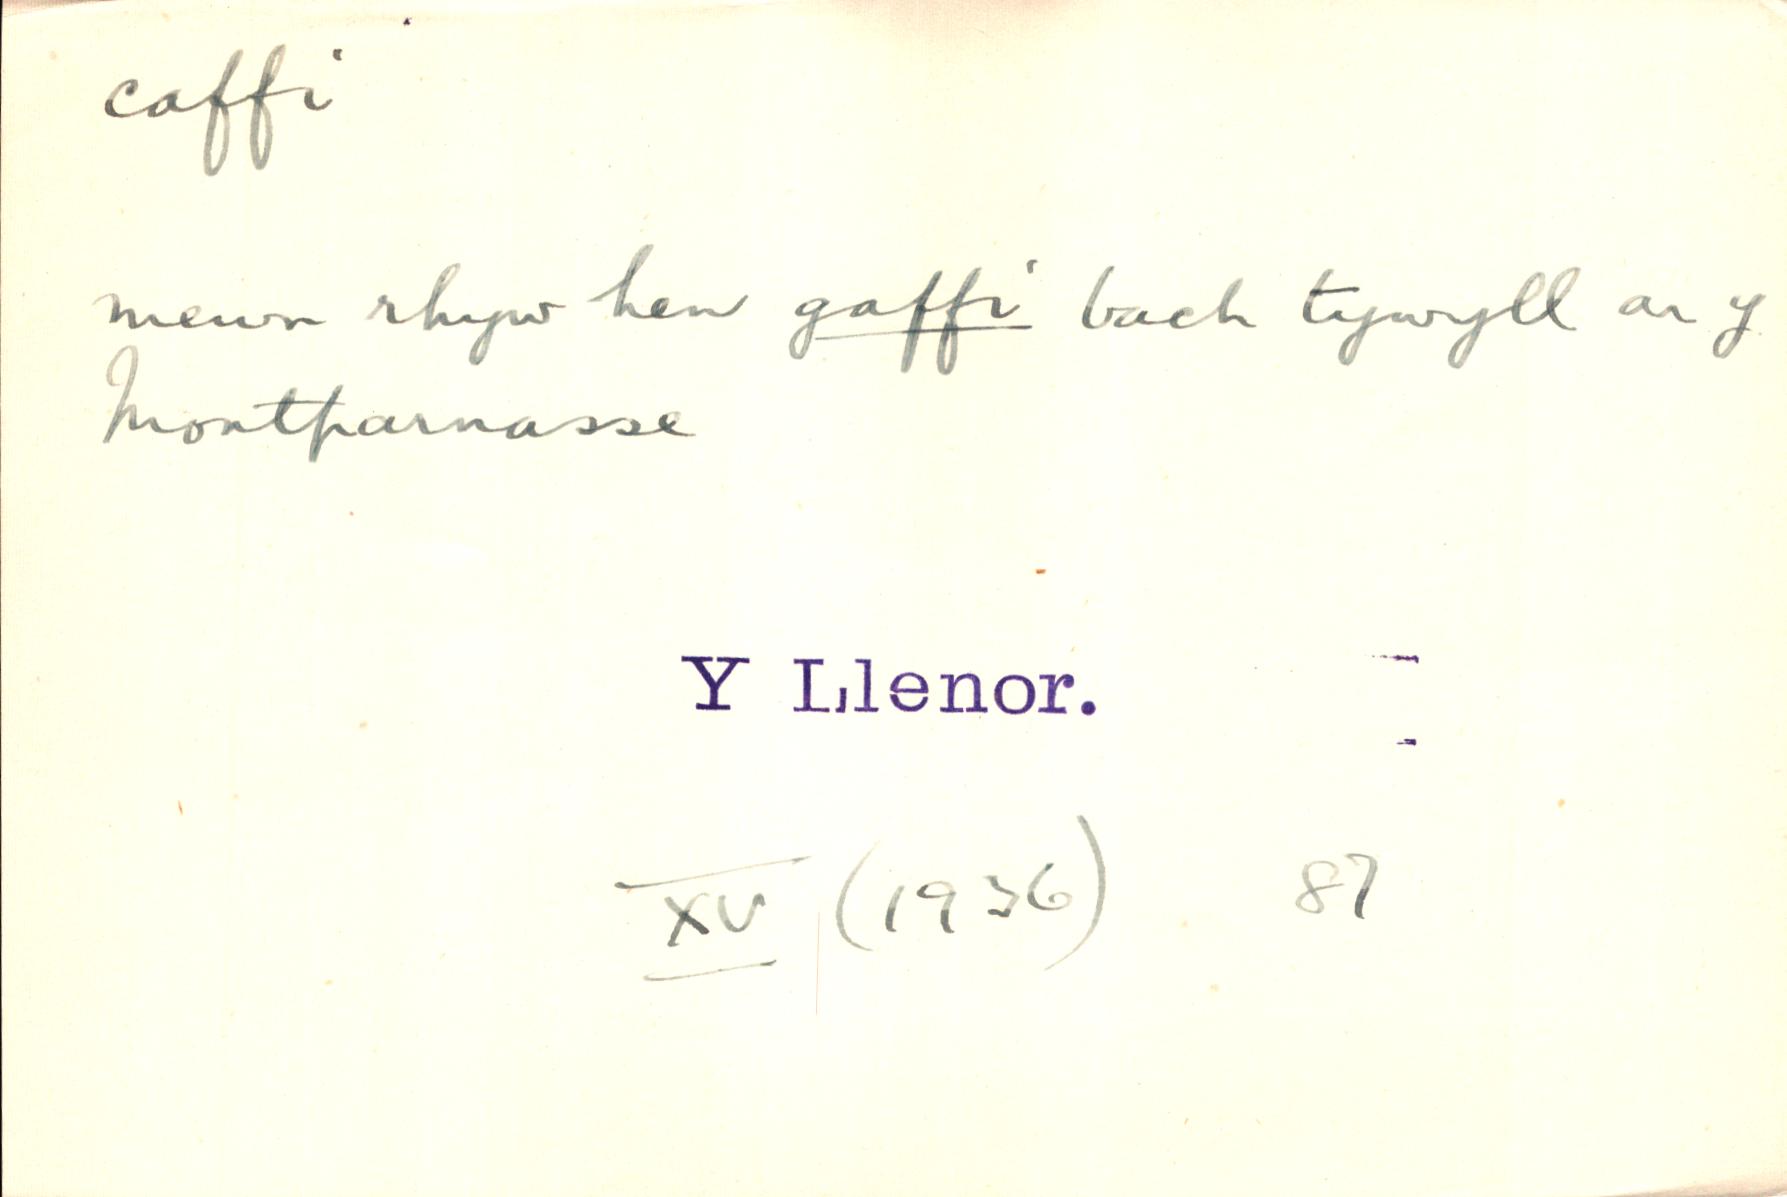 caffi
mewn rhyw hen gaffi bach tywyll ar y
Montparnasse
Y Llenor.
XV (1936) 87